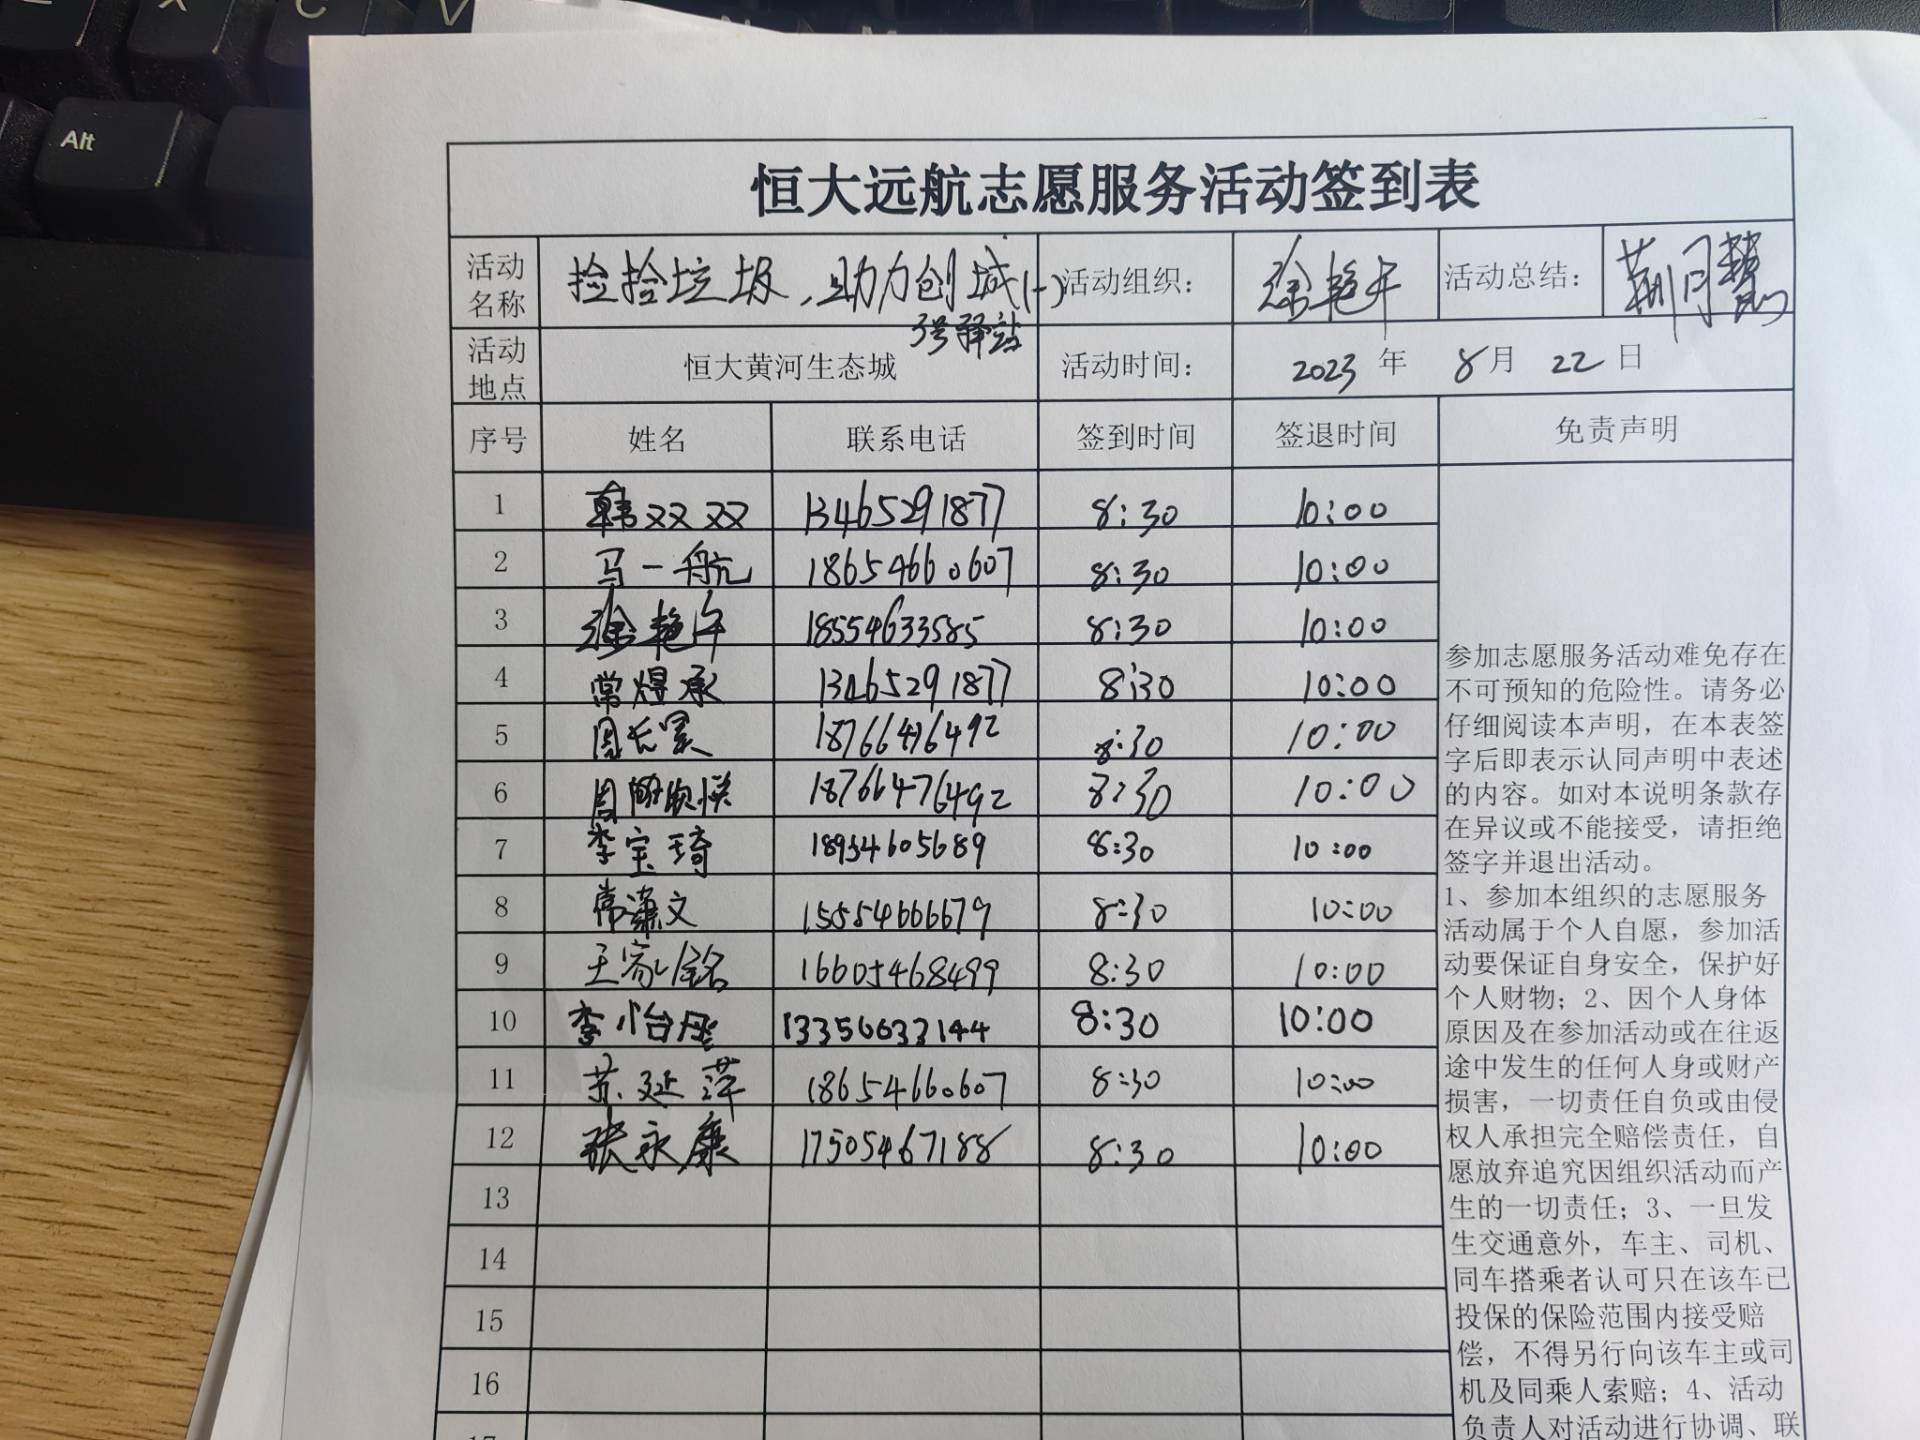 Alt
X C V
恒大远航志愿服务活动签到表
活动名称 捡拾垃圾,助力创城(一) 活动组织: 徐艳午 活动总结: 荆月慧
3号驿站
活动地点 恒大黄河生态城 活动时间: 2023 年 8 月 22 日
序号 姓名 联系电话 签到时间 签退时间 免责声明
1 韩双双 13465291877 8:30 10:00
2 马一航 18654660607 8:30 10:00
3 徐艳午 18554633585 8:30 10:00
4 常煜承 13465291877 8:30 10:00
5 周 18766476492 8:30 10:00
6 周 18766476492 8:30 10:00
7 李宝琦 18954605689 8:30 10:00
8 常潇文 15554666679 8:30 10:00
9 王家铭 16605468499 8:30 10:00
10 李怡 13356633144 8:30 10:00
11 苏延萍 18654660607 8:30 10:00
12 张永康 17505467188 8:30 10:00
13
14
15
16
17
参加志愿服务活动难免存在
不可预知的危险性。请务必
仔细阅读本声明,在本表签
字后即表示认同声明中表述
的内容。如对本说明条款存
在异议或不能接受,请拒绝
签字并退出活动。
1、参加本组织的志愿服务
活动属于个人自愿,参加活
动要保证自身安全,保护好
个人财物;2、因个人身体
原因及在参加活动或在往返
途中发生的任何人身或财产
损害,一切责任自负或由侵
权人承担完全赔偿责任,自
愿放弃追究因组织活动而产
生的一切责任;3、一旦发
生交通意外,车主、司机、
同车搭乘者认可只在该车已
投保的保险范围内接受赔
偿,不得另行向该车主或司
机及同乘人索赔;4、活动
负责人对活动进行协调、联